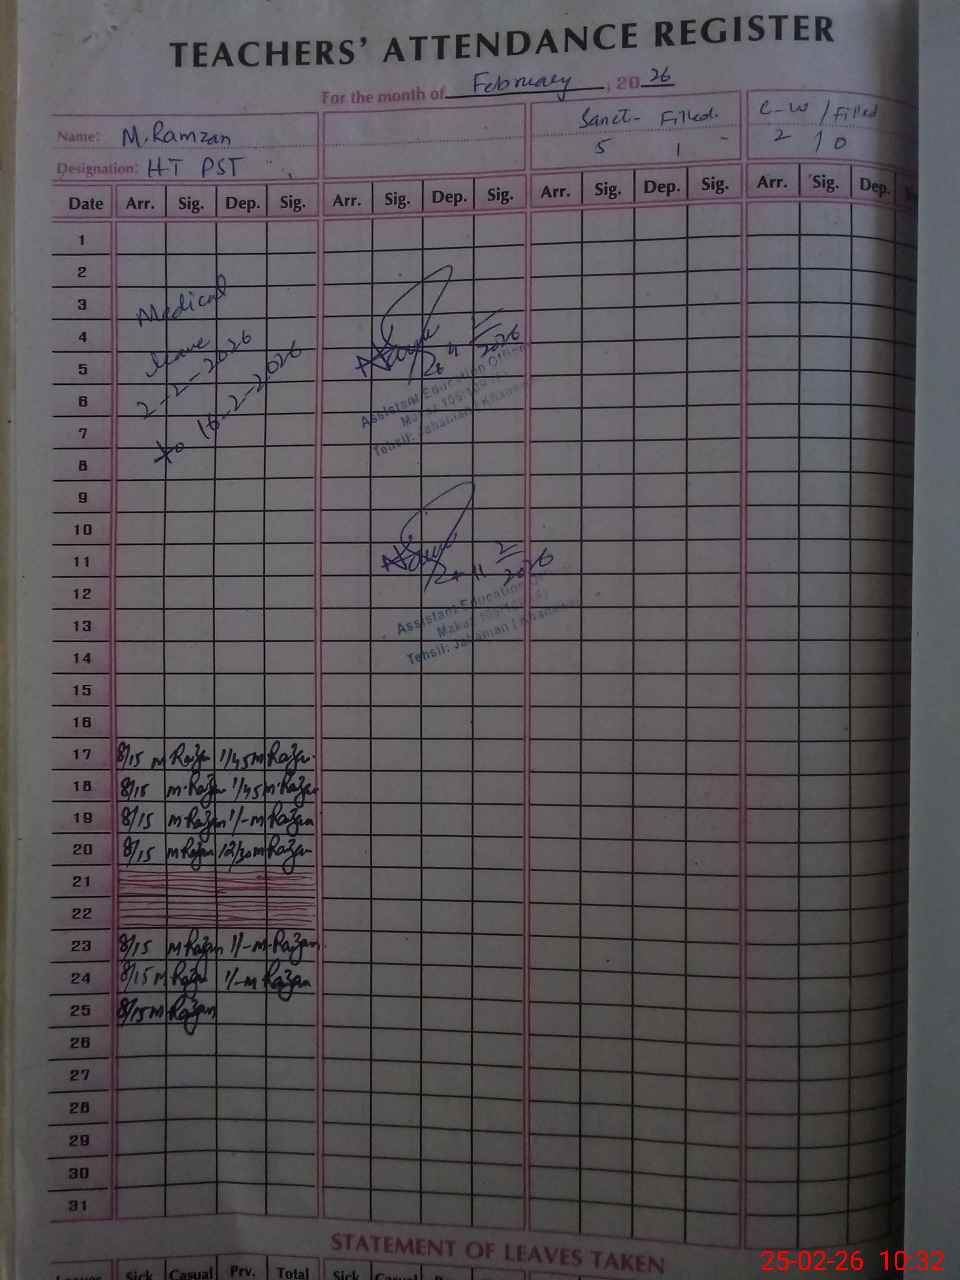 TEACHERS' ATTENDANCE REGISTER
For the month of February, 2026
Name: M.Ramzan
Sanct- Filled.
C-W / Filled
Designation: HT PST
5 1 -
2 / 0
Date Arr. Sig. Dep. Sig. Arr. Sig. Dep. Sig. Arr. Sig. Dep. Sig. Arr. Sig. Dep.
1
2
3
Medical
4
leave 2026
5
2-2-2026
Assistant Education Officer
6
to 16-2-2026
7
Tehsil: Jahanian (Khanewal)
8
9
10
11
2
11 2026
12
Assistant Education
13
14
Tehsil: Jahanian (Khanewal)
15
16
17 8/15 1/45
18 8/15 1/45
19 8/15 1/-
20 8/15 12/30
21
22
23 8/15 1/-
24 8/15 1/-
25 8/15
26
27
28
29
30
31
STATEMENT OF LEAVES TAKEN
Leaves Sick Casual Prv. Total Sick Casual
25-02-26 10:32